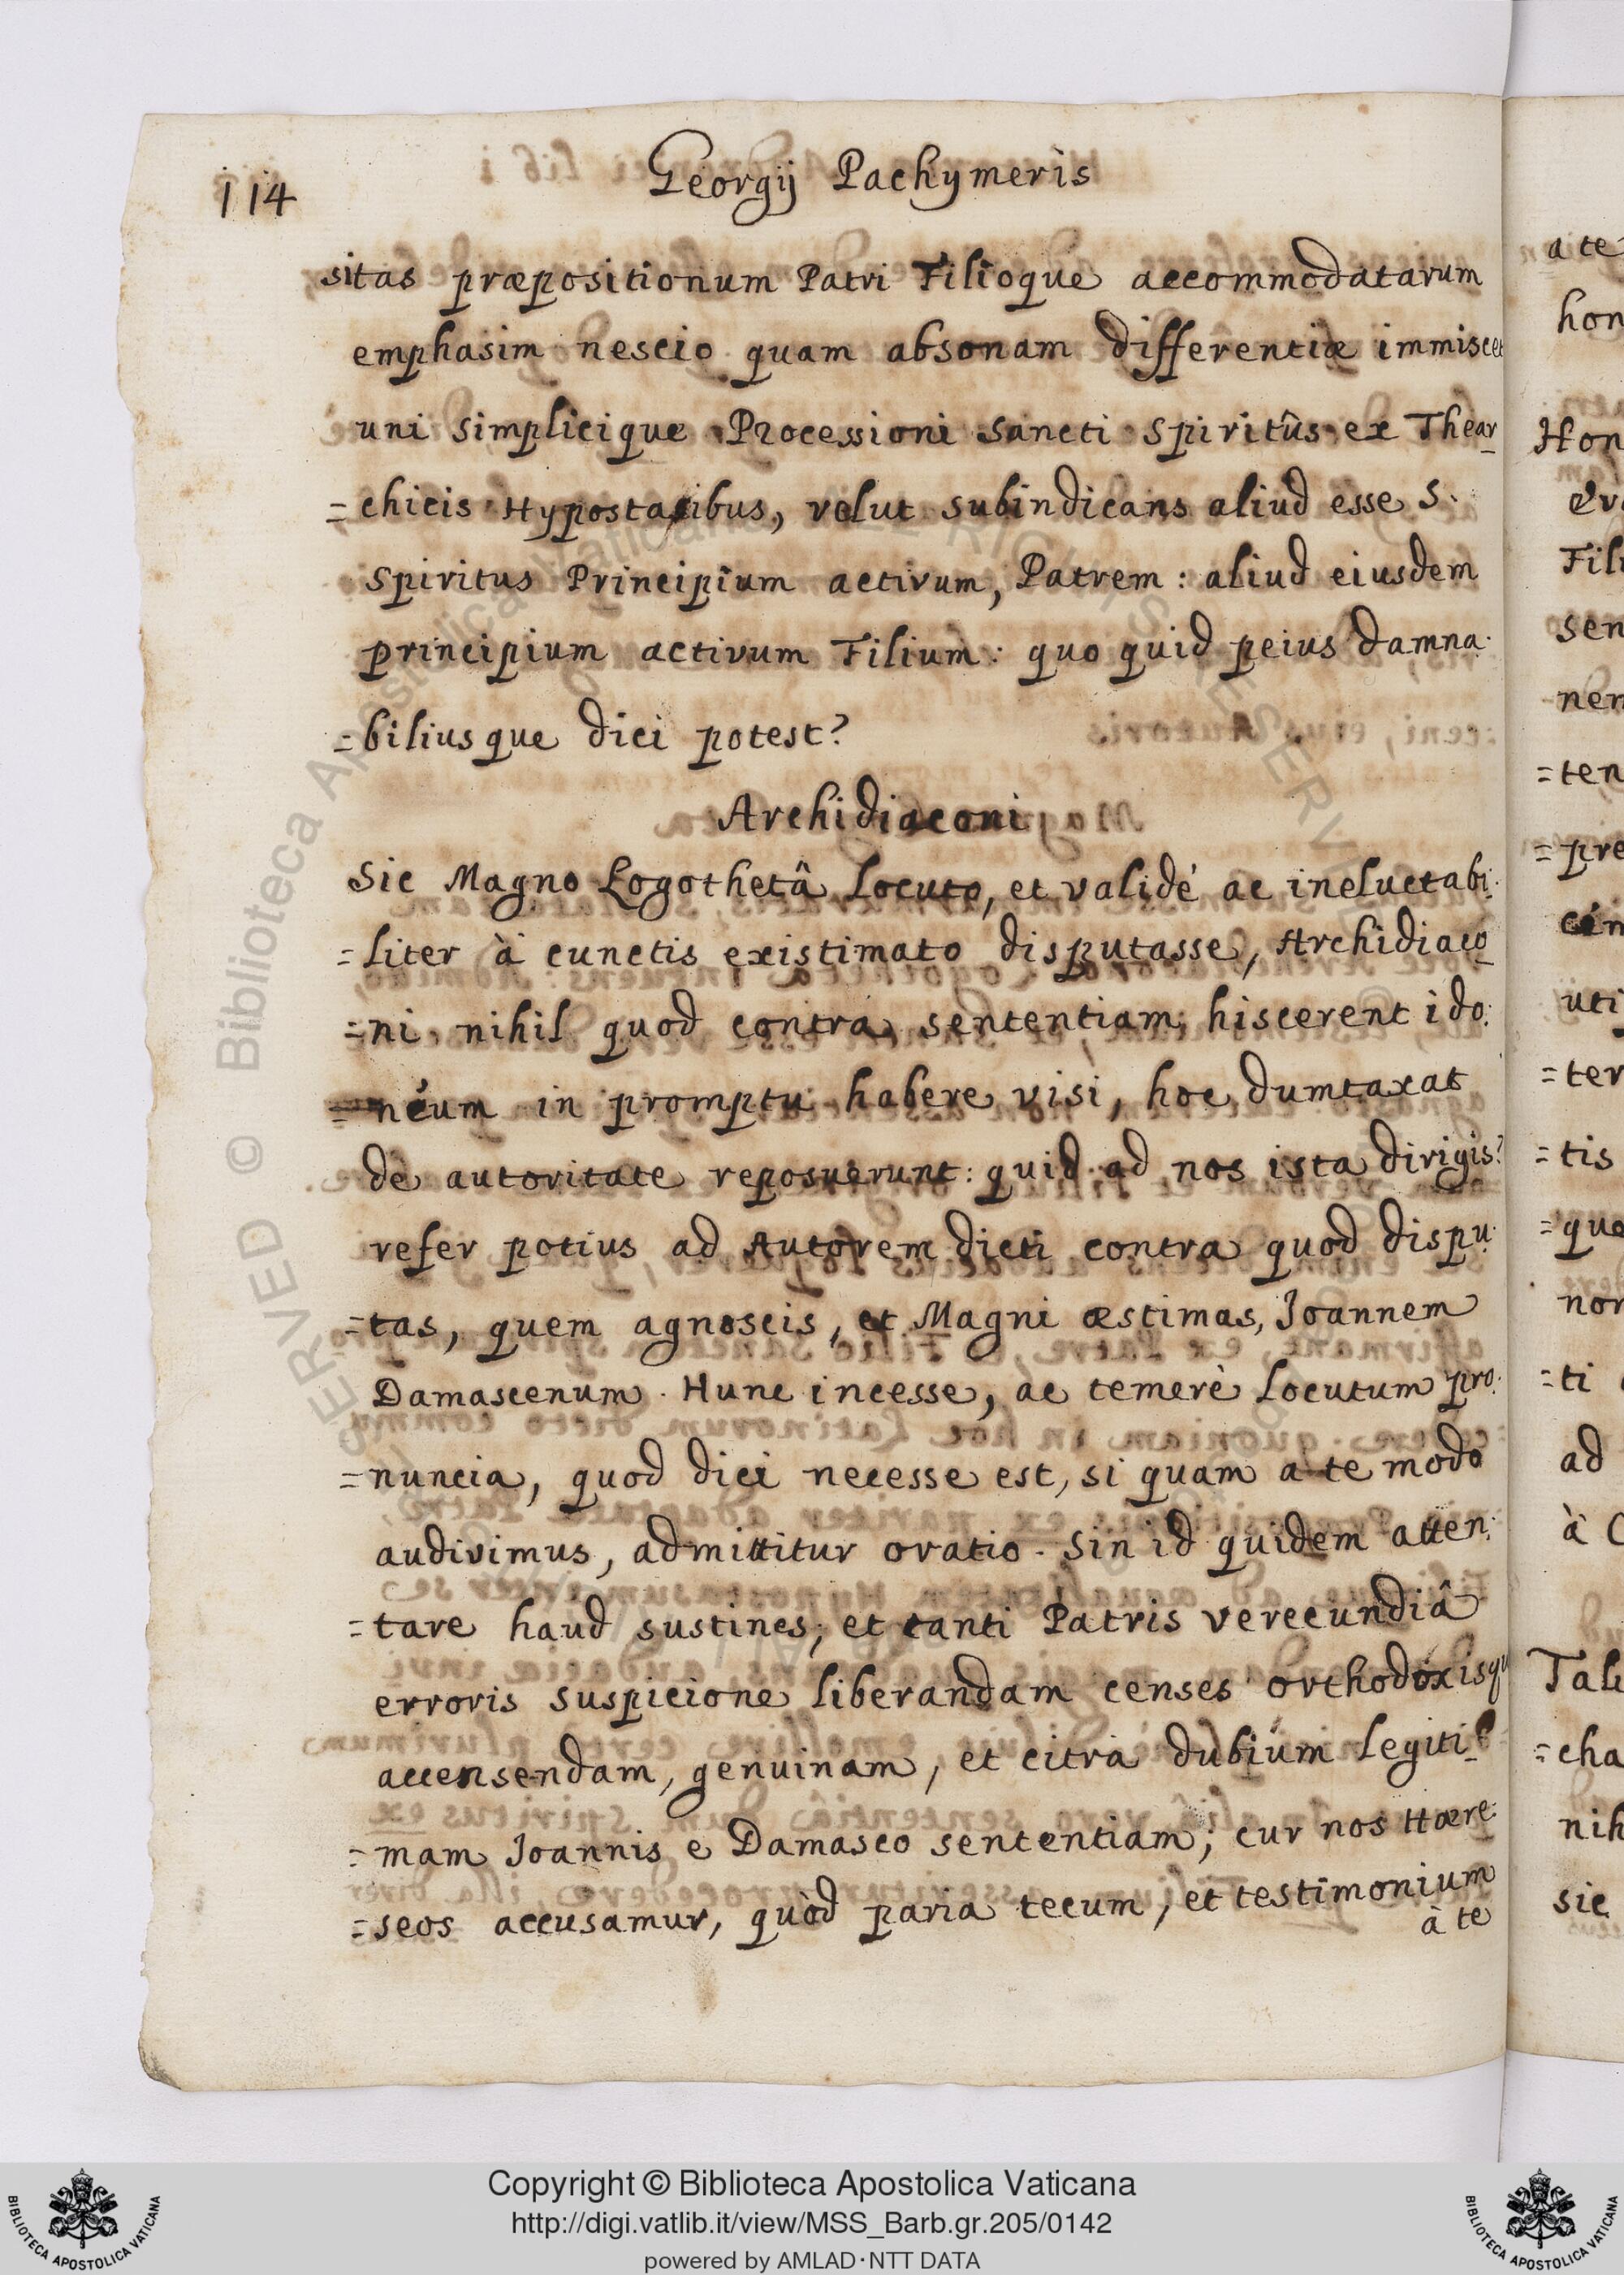 114
Georgij Pachymeris
sitas præpositionum Patri Filioque accommodatarum
emphasim nescio quam absonam differentiæ immiscet
uni simplicique Processioni Sancti Spiritûs ex Thear_
=chicis Hypostasibus, velut subindicans aliud esse S.
Spiritus Principium activum, Patrem: aliud eiusdem
principium activum Filium: quo quid peius damna:
=biliusque dici potest?
Archidiaconi
Sic Magno Logothetâ Locuto, et validé ac ineluctabi:
=liter à cunctis existimato disputasse, Archidiaco_
=ni nihil quod contra sententiam hiscerent ido:
=neum in promptu habere visi, hoc dumtaxat
de autoritate reposuerunt: quid ad nos ista dirigis?
refer potius ad Autorem dicti contra quod dispu:
=tas, quem agnoscis, et Magni æstimas, Joannem
Damascenum. Hunc incesse, ac temerè Locutum pro:
=nuncia, quod dici necesse est, si quam a te modo
audivimus, admittitur oratio. Sin id quidem atten:
=tare haud sustines, et tanti Patris verecundiâ
erroris suspicione liberandam censes orthodoxisqu
accensendam, genuinam, et citra dubium Legiti:
=mam Joannis e Damasco sententiam; cur nos Hære:
=seos accusamur, quòd paria tecum, et testimonium
à te
a te
hon
Hon
Fili
sen
nen
=ten
=pre
uti
=ter
=tis
=que
non
=ti
ad
à C
Tali
=cha
nih
sic
Copyright © Biblioteca Apostolica Vaticana
http://digi.vatlib.it/view/MSS_Barb.gr.205/0142
powered by AMLAD·NTT DATA
BIBLIOTECA APOSTOLICA VATICANA
BIBLIOTECA APOSTOLICA VATICANA